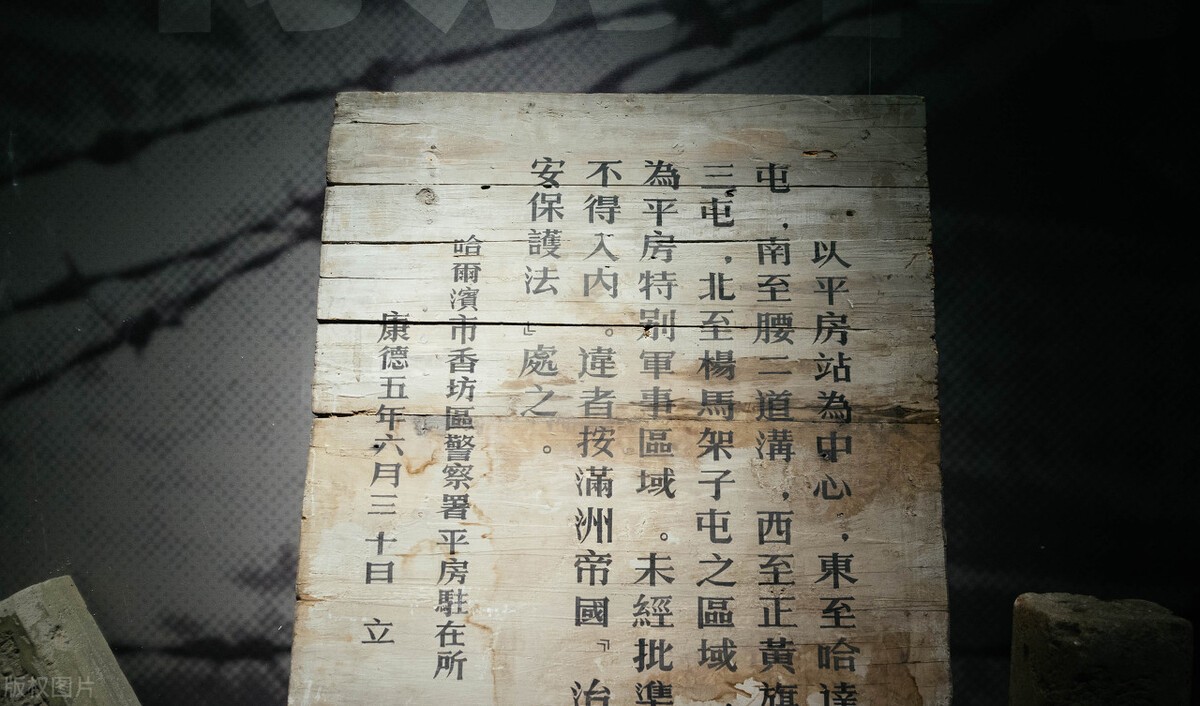 以平房站為中心，東至哈達
屯，南至腰二道溝，西至正黃旗
三屯，北至楊馬架子屯之區域，
為平房特別軍事區域。未經批準
不得入內。違者按滿洲帝國『治
安保護法』處之。
哈爾濱市香坊區警察署平房駐在所
康德五年六月三十日 立
版权图片